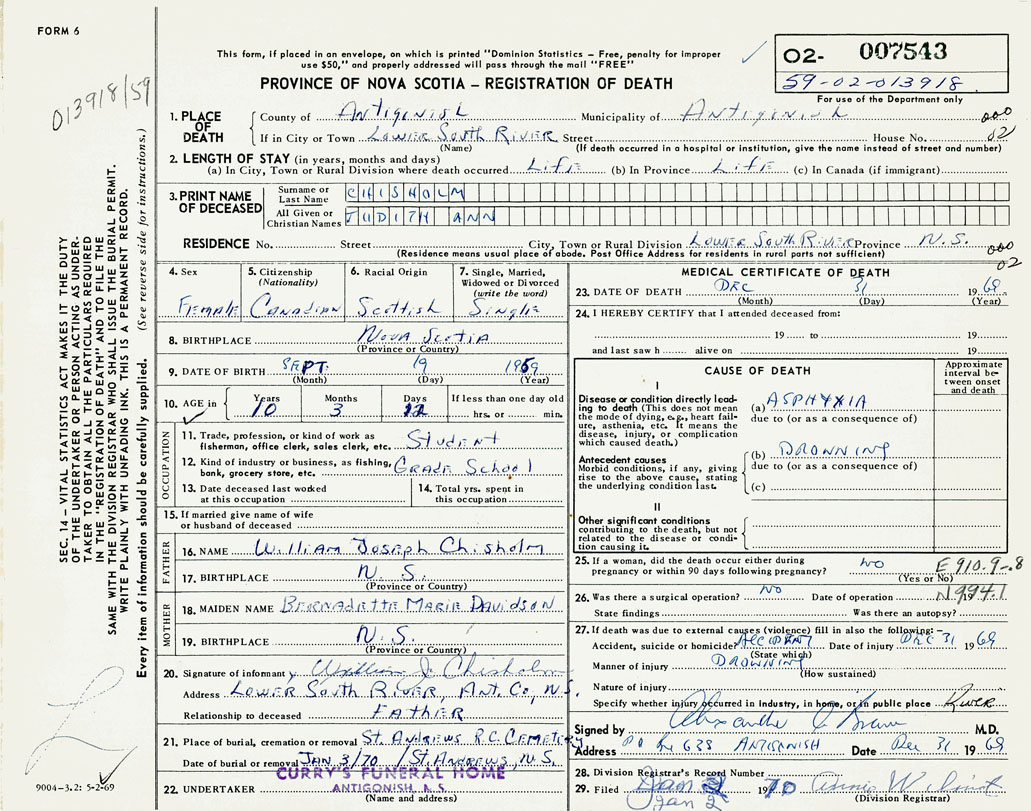 FORM 6
013918/59
This form, if placed in an envelope, on which is printed "Dominion Statistics – Free, penalty for improper
use $50," and properly addressed will pass through the mail "FREE"
PROVINCE OF NOVA SCOTIA – REGISTRATION OF DEATH
02- 007543
59-02-013918
For use of the Department only
1. PLACE OF DEATH
County of Antigonish Municipality of Antigonish 000
If in City or Town Lower South River Street House No. 02
(Name) (If death occurred in a hospital or institution, give the name instead of street and number)
2. LENGTH OF STAY (in years, months and days)
(a) In City, Town or Rural Division where death occurred Life (b) In Province Life (c) In Canada (if immigrant)
3. PRINT NAME OF DECEASED
Surname or Last Name CHISHOLM
All Given or Christian Names JUDITH ANN
RESIDENCE No. Street City, Town or Rural Division Lower South River Province N.S. 000
(Residence means usual place of abode. Post Office Address for residents in rural parts not sufficient) 02
4. Sex Female
5. Citizenship (Nationality) Canadian
6. Racial Origin Scottish
7. Single, Married, Widowed or Divorced (write the word) Single
8. BIRTHPLACE Nova Scotia
(Province or Country)
9. DATE OF BIRTH Sept. 19 1959
(Month) (Day) (Year)
10. AGE in Years 10 Months 3 Days 12 If less than one day old hrs. or min.
OCCUPATION
11. Trade, profession, or kind of work as fisherman, office clerk, sales clerk, etc. Student
12. Kind of industry or business, as fishing, bank, grocery store, etc. Grade School
13. Date deceased last worked at this occupation
14. Total yrs. spent in this occupation
15. If married give name of wife or husband of deceased
FATHER
16. NAME William Joseph Chisholm
17. BIRTHPLACE N.S.
(Province or Country)
MOTHER
18. MAIDEN NAME Bernadette Marie Davidson
19. BIRTHPLACE N.S.
(Province or Country)
20. Signature of informant William J Chisholm
Address Lower South River, Ant. Co, N.S.
Relationship to deceased Father
21. Place of burial, cremation or removal St. Andrews R.C. Cemetery
Date of burial or removal Jan 3/70 / St. Andrews, N.S.
22. UNDERTAKER CURRY'S FUNERAL HOME
ANTIGONISH, N.S.
(Name and address)
MEDICAL CERTIFICATE OF DEATH
23. DATE OF DEATH Dec 31 1969
(Month) (Day) (Year)
24. I HEREBY CERTIFY that I attended deceased from:
19 to 19
and last saw h alive on 19
CAUSE OF DEATH
Approximate interval between onset and death
I
Disease or condition directly leading to death (This does not mean the mode of dying, e.g., heart failure, asthenia, etc. It means the disease, injury, or complication which caused death.)
(a) ASPHYXIA
due to (or as a consequence of)
Antecedent causes
Morbid conditions, if any, giving rise to the above cause, stating the underlying condition last.
(b) DROWNING
due to (or as a consequence of)
(c)
II
Other significant conditions contributing to the death, but not related to the disease or condition causing it.
25. If a woman, did the death occur either during pregnancy or within 90 days following pregnancy? NO E 910.9-8
(Yes or No)
26. Was there a surgical operation? NO Date of operation 19 N994.1
State findings Was there an autopsy?
27. If death was due to external causes (violence) fill in also the following:–
Accident, suicide or homicide? ACCIDENT Date of injury DEC 31 1969
(State which)
Manner of injury DROWNING
(How sustained)
Nature of injury
Specify whether injury occurred in industry, in home, or in public place River
Signed by M.D.
Address PO Bx 635 ANTIGONISH Date Dec 31 1969
28. Division Registrar's Record Number
29. Filed Jan 2 1970
Jan 2 (Division Registrar)
SEC. 14 – VITAL STATISTICS ACT MAKES IT THE DUTY
OF THE UNDERTAKER OR PERSON ACTING AS UNDER-
TAKER TO OBTAIN ALL THE PARTICULARS REQUIRED
IN THE "REGISTRATION OF DEATH" AND TO FILE THE
SAME WITH THE DIVISION REGISTRAR WHO SHALL ISSUE THE BURIAL PERMIT.
WRITE PLAINLY WITH UNFADING INK. THIS IS A PERMANENT RECORD.
Every item of information should be carefully supplied. (See reverse side for instructions.)
9004–3.2: 5-2-69